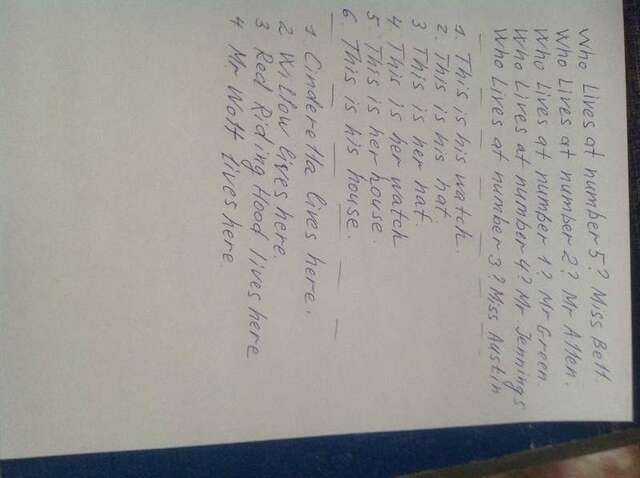 Who Lives at number 5? Miss Bell.
Who Lives at number 2? Mr Allen.
Who Lives at number 1? Mr Green.
Who Lives at number 4? Mr Jennings
Who Lives at number 3? Miss Austin
1. This is his watch.
2. This is his hat.
3 This is her hat.
4 This is her watch
5. This is her house.
6. This is his house.
1. Cinderella lives here.
2 Willow lives here.
3 Red Riding Hood lives here
4 Mr Wolf lives here.